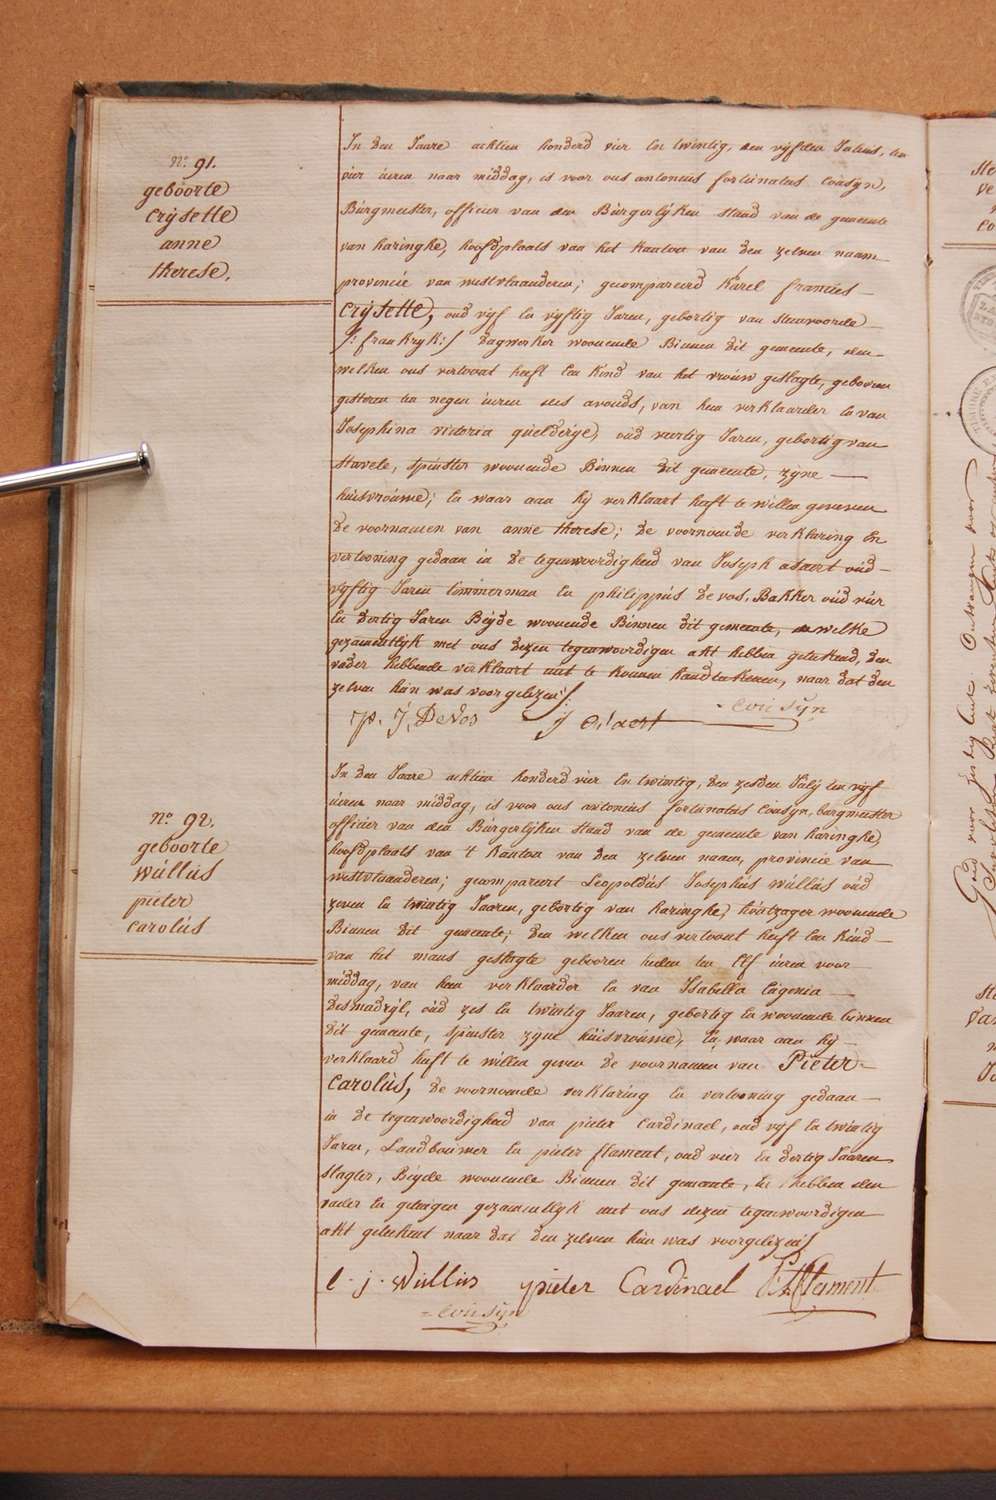 n.º 91.
geboorte
crijsette
anne
therese.
In den Jaare achtien honderd vier en twintig, den vijfden Julius, ten
vier uren naar middag, is voor ons antonius fortunatus Cousyn,
Burgmeister, officier van den Burgerlijken stand van de gemeente
van haringhe, hoofdplaats van het kanton van den zelven naam
provincie van westvlaanderen; gecompareerd Karel francies
crijsette, oud vijf en vyftig Jaren, gebortig van steenvoorde
/: frankryk:/ dagwerker woonende Binnen dit gemeente, den
welken ons vertoont heeft een kind van het vrouw geslagte, geboren
gisteren ten negen uren des avonds, van hem verklaarder en van
Josephina victoria quelderye, oud veertig Jaren, gebortig van
stavele, spinster woonende Binnen dit gemeente, zyne
huisvrouwe; en waar aan hy verklaart heeft te willen geven
De voornamen van anne therese; De voornoemde verklaring en
vertooning gedaan in De tegenwoordigheid van Joseph adaert oud
vyftig Jaren timmerman en philippus De vos, Bakker oud vier
en dertig Jaren Beyde woonende Binnen dit gemeente, welke
gezamentlyk met ons dezen tegenwoordigen akt hebben geteekend, den
vader hebbende verklaart niet te konnen handteekenen, naar dat den
zelven hun was voorgelezen /.
p. J. De Vos J Adaert cousyn
n.º 92.
geboorte
wullus
pieter
carolus
In den Jaare achtien honderd vier en twintig, den zesden July ten vijf
uren naar middag, is voor ons antonius fortunatus Cousyn, burgmeester
officier van den Burgerlyken stand van de gemeente van haringhe,
hoofdplaats van 't kanton van den zelven naam, provincie van
westvlaanderen; gecompareert Leopoldus Josephus wullus oud
zeven en twintig Jaaren, gebortig van haringhe, houtzager woonende
Binnen dit gemeente; den welken ons vertoont heeft een kind
van het mans geslagte gebooren heden ten elf uren voor
middag, van hem verklaarder en van Isabella Eugenia
Desmadryl, oud zes en twintig Jaaren, gebortig en woonende binnen
dit gemeente, spinster zyne huisvrouwe, en waar aan hy
verklaard heeft te willen geven de voornamen van Pieter
Carolus, de voornoemde verklaring en vertooning gedaan
in de tegenwoordigheid van pieter cardinael, oud vyf en twintig
Jaren, Landbouwer en pieter flament, oud vier en dertig Jaaren
slagter, Beyde woonende Binnen dit gemeente, en hebben den
vader en getuigen gezamentlyk met ons dezen tegenwoordigen
akt geteekent naar dat den zelven hun was voorgelezen /
l. j. Wullus pieter Cardinael flament
cousyn